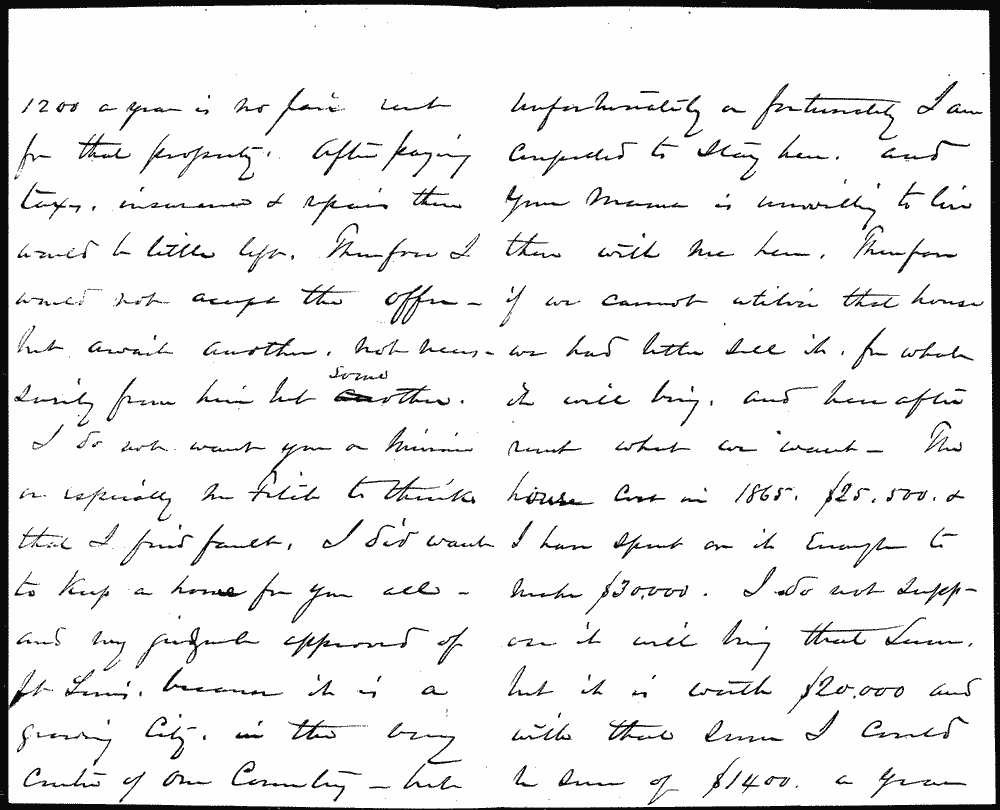 1200 a year is no fair rent
for that property. After paying
taxes, insurance & repairs there
would be little left. Therefore I
would not accept the offer -
but await another, not neces-
sarily from him but some other.
I do not want you or Minnie
or especially Mr Fitch to think
that I find fault, I did want
to keep a home for you all -
and my judgmt approved of
St Louis, because it is a
growing City, in the very
centre of our Country - but
Unfortunately or fortunately I am
compelled to stay here, and
your Mama is unwilling to live
there with me here. Therefore
if we cannot utilize that house
we had better sell it, for what
it will bring, and hereafter
rent what we want - The
house cost in 1865, $25,500, &
I have spent on it enough to
make $30,000. I do not supp-
ose it will bring that sum,
but it is worth $20,000 and
with that sum I could
be sure of $1400, a year